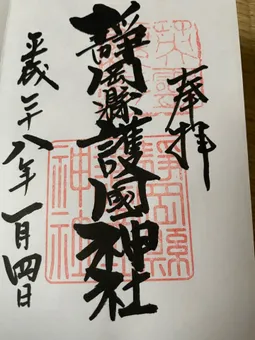 奉拝
靜岡縣護國神社
平成二十八年一月四日
靜岡縣
神社